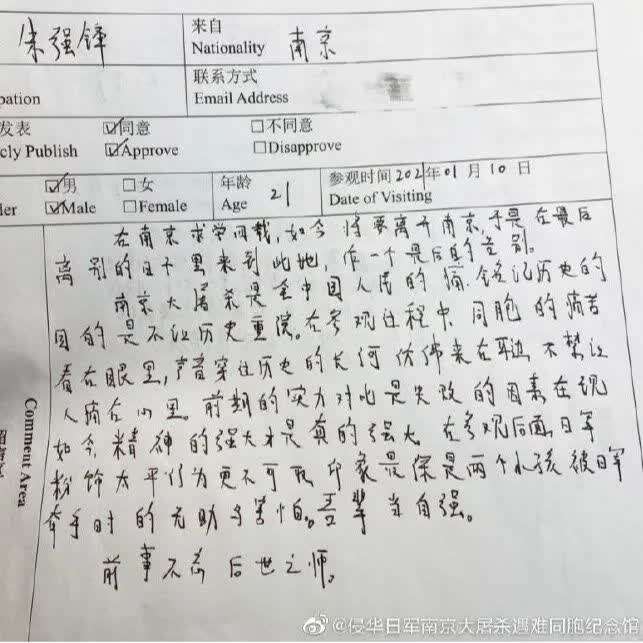 朱强锋
来自
Nationality 南京
联系方式
pation Email Address
发表 同意 不同意
cly Publish Approve Disapprove
男 女 年龄 21 参观时间 2021年01月10日
der Male Female Age Date of Visiting
在南京求学四载,如今将要离开南京,于是在最后
离别的日子里来到此地,作一个最后的告别。
南京大屠杀是全中国人民的痛,铭记历史的
目的是不让历史重现。在参观过程中,同胞的痛苦
看在眼里,声音穿过历史的长河仿佛来在耳边,不禁让
人痛在心里。前期的实力对比是失败的因素,在现
如今,精神的强大才是真的强大。在参观后面,日军
粉饰太平行为更不可取,印象最深是两个小孩被日军
牵手时的无助与害怕。吾辈当自强。
前事不忘 后世之师。
Comment Area
@侵华日军南京大屠杀遇难同胞纪念馆